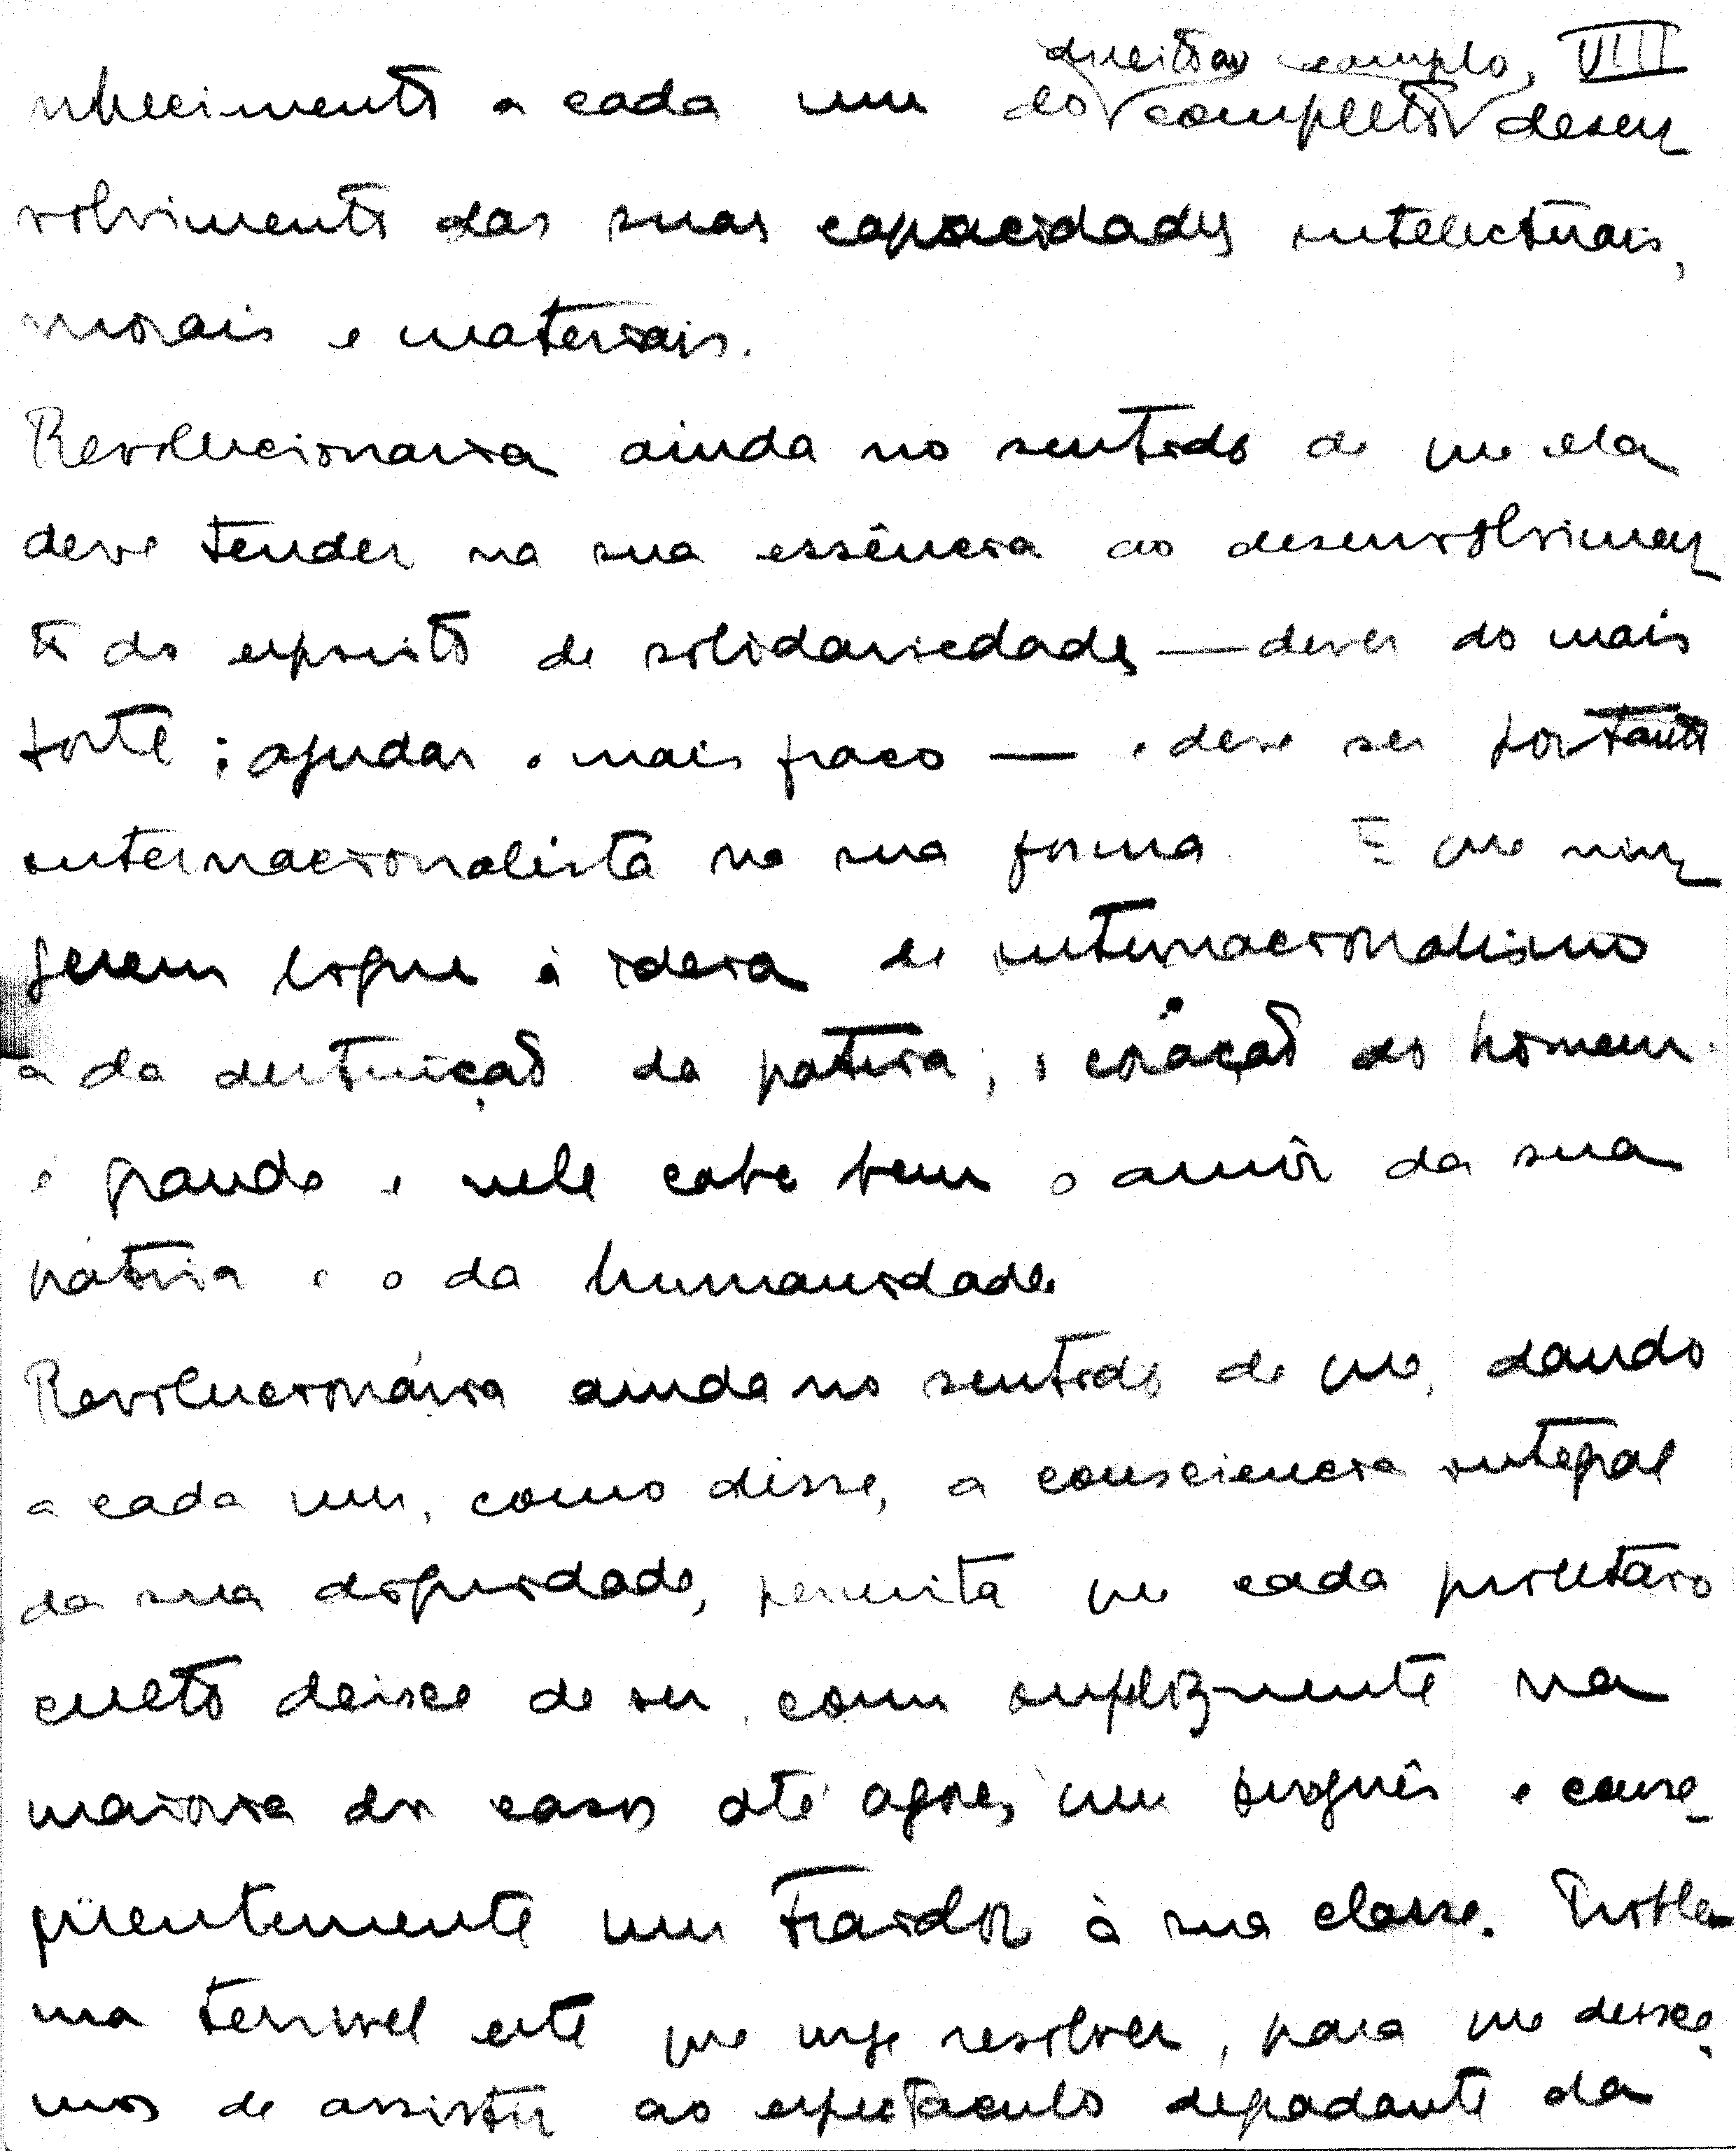 direito ao completo, VIII
nhecimento a cada um do completo desen
volvimento das suas capacidades intelectuais,
morais e materiais.
Revolucionaria ainda no sentido de que ela
deve tender na sua essência ao desenvolvimen
to do espirito de solidariedade — dever do mais
forte: ajudar o mais fraco — e deve ser portanto
internacionalista na sua forma. E que nin
guem ligue á ideia de internacionalismo
a da destruição da patria; o coração do homem
é grande e nele cabe bem o amôr da sua
pátria e o da humanidade
Revolucionária ainda no sentido de que, dando
a cada um, como disse, a consciencia integral
da sua dignidade, permita que cada proletário
culto deixe de ser, como infelizmente na
maioria dos casos até agora, um burguês e conse
qüentemente um traidor à sua classe. Proble
ma terrivel este que urge resolver, para que deixe
mos de assistir ao espectáculo degradante da